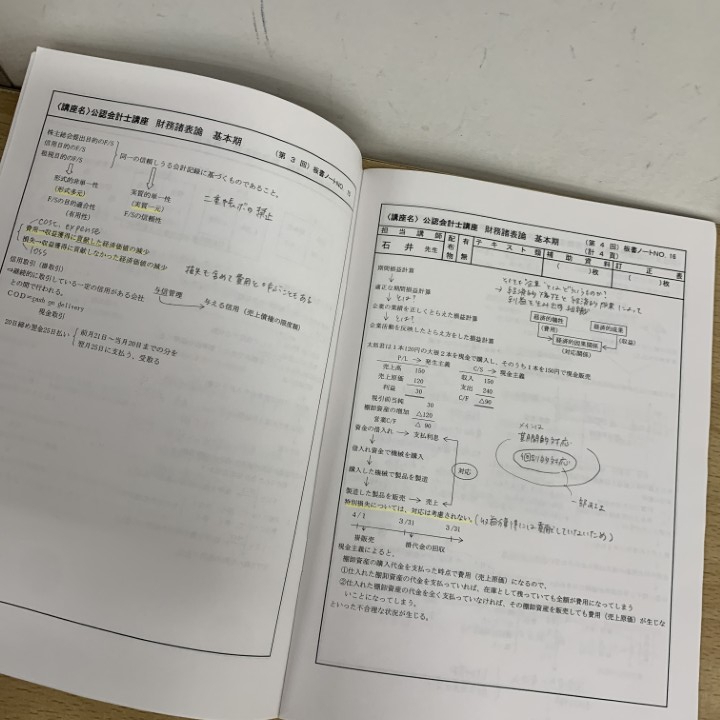 〈講座名〉公認会計士講座 財務諸表論 基本期
(第 3 回) 板書ノートNO. 15
株主総会提出目的のF/S
信用目的のF/S
租税目的のF/S
同一の信頼しうる会計記録に基づくものであること。
形式的非単一性
(形式多元)
F/Sの目的適合性
(有用性)
実質的単一性
(実質一元)
F/Sの信頼性
二重帳ボの禁止
cost, expense
費用→収益獲得に貢献した経済価値の減少
損失→収益獲得に貢献しなかった経済価値の減少
loss
損失も含めて費用と呼ぶこともある
信用取引(掛取引)
⇒継続的に取引している一定の信用がある会社
との間で行われる。
与信管理
与える信用(売上債権の限度額)
COD=cash on delivery
現金取引
20日締め翌金25日払い
前月21日〜当月20日までの分を
翌月25日に支払う、受取る
〈講座名〉公認会計士講座 財務諸表論 基本期
(第 4 回) 板書ノートNO. 16
(計 4 頁)
担当講師
石井 先生
配布物
有
無
テキスト
補助資料
( )枚
訂正表
( )枚
期間損益計算
適正な期間損益計算
とは?
企業の業績を正しくとらえた損益計算
とは?
企業活動を反映したとらえ方をした損益計算
経済的犠牲
(費用)
経済的成果
(収益)
経済的因果関係
(対応関係)
太郎君は1本120円の大根2本を現金で購入し、そのうち1本を150円で現金販売
P/L → 発生主義
売上高 150
売上原価 120
利益 30
C/S → 現金主義
収入 150
支出 240
C/F △90
税引前当純 30
棚卸資産の増加 △120
営業C/F △90
資金の借入れ → 支払利息
借入れ資金で機械を購入
購入した機械で製品を製造
製造した製品を販売 → 売上
対応
メインは
期間的対応
個別的対応
特別損失については、対応は考慮されない。
(収益獲得には貢献していないため)
4/1 3/31 3/31
掛販売
掛代金の回収
現金主義によると、
棚卸資産の購入代金を支払った時点で費用(売上原価)になるので、
①仕入れた棚卸資産の代金を支払っていれば、在庫として残っていても全額が費用になってしまう
②仕入れた棚卸資産の代金を全く支払っていなければ、その棚卸資産を販売しても費用(売上原価)が生じな
いことになってしまう。
といった不合理な状況が生じる。